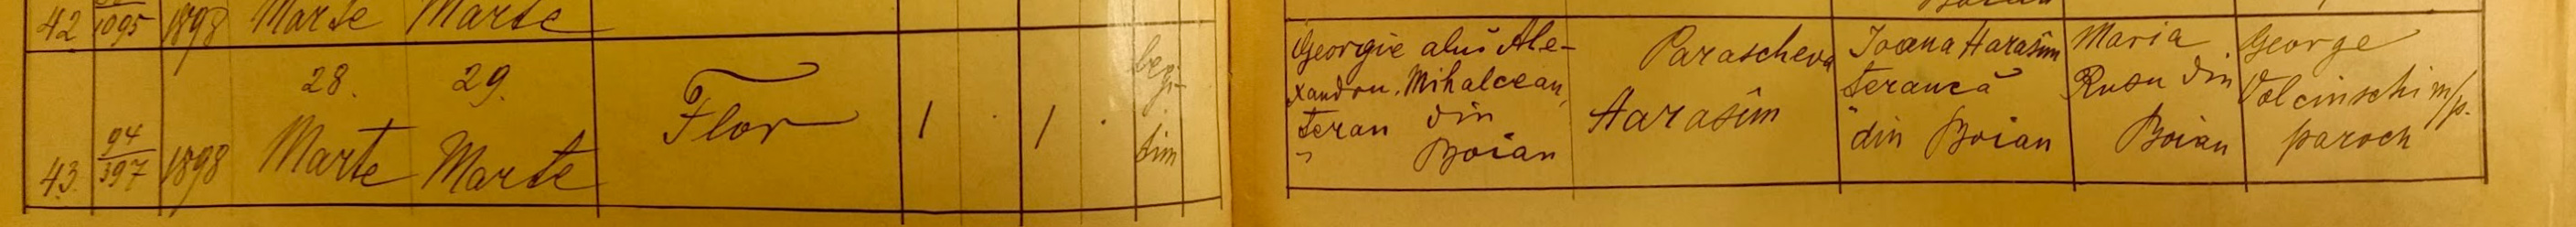 42 1095 1898 Marte Marte
43. 94/397 1898 28. Marte 29. Marte Flor 1 . 1 . legi-
tim
Georgie alui Ale-
xandru Mihalcean,
țeran din
Boian
Parascheva
Harasim
Ioana Harasim
țerancă
din Boian
Maria
Rusu din
Boian
George
Volcinschi m/p.
paroch